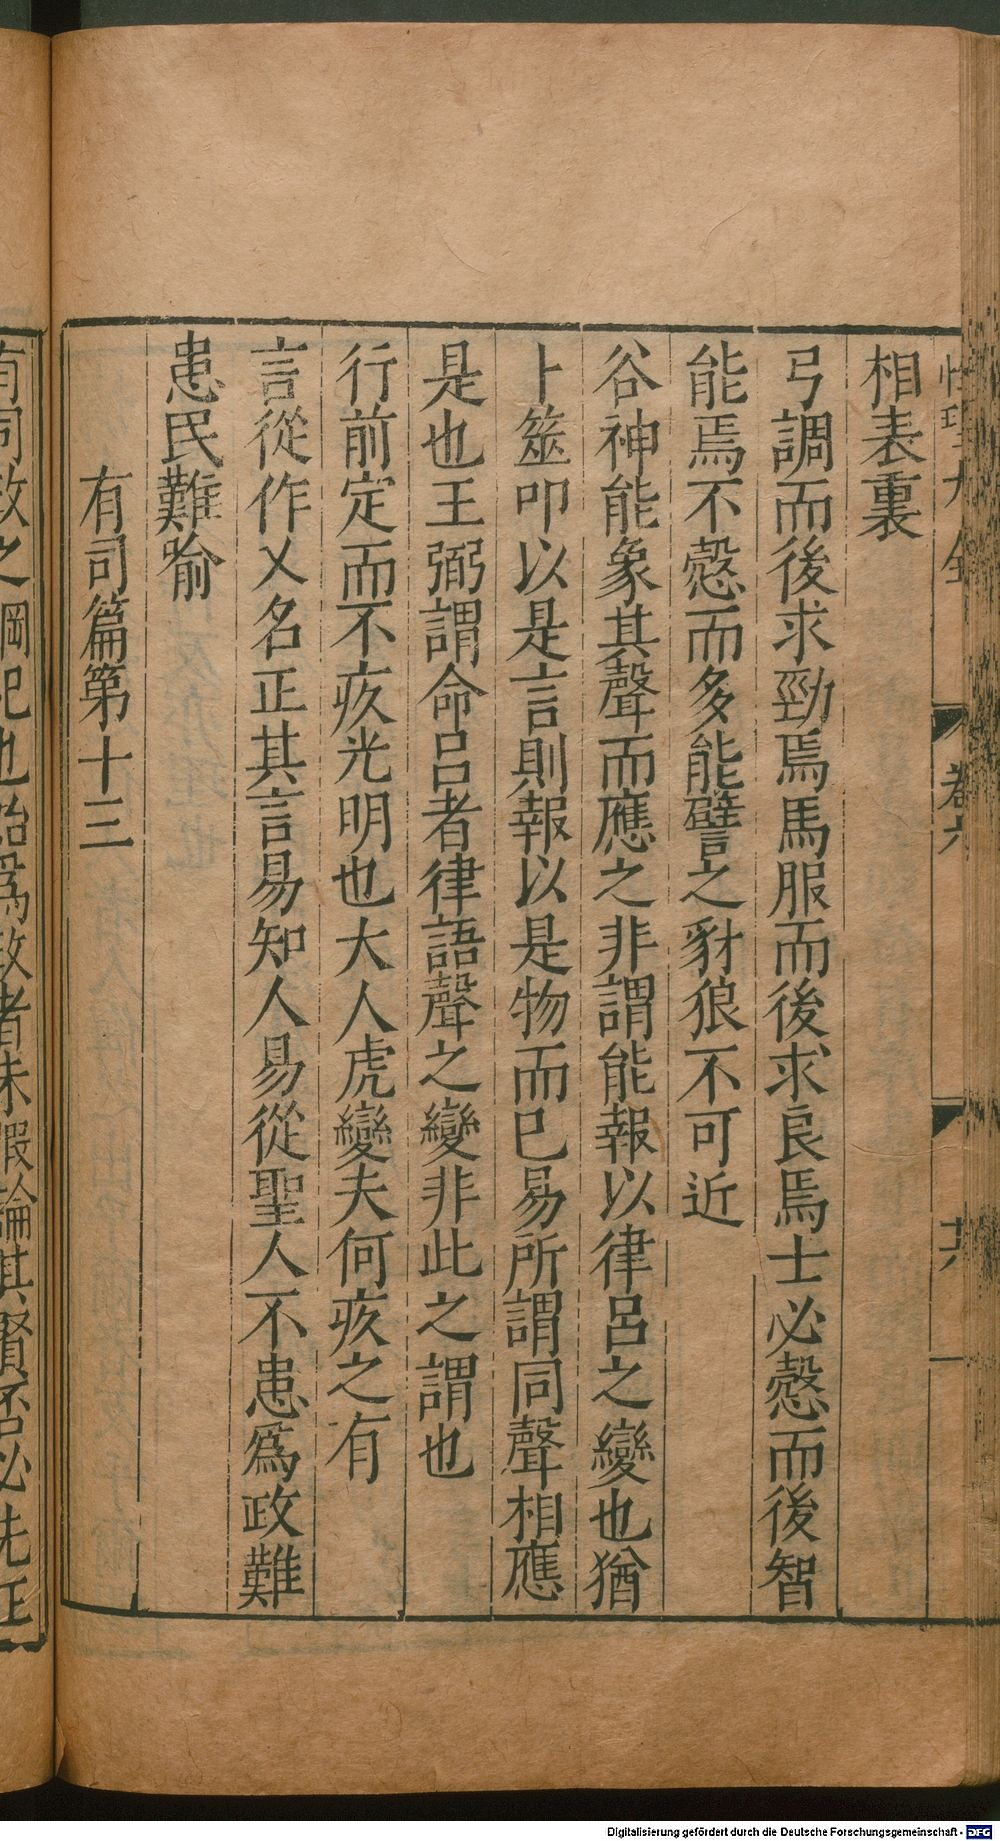 性理大全 卷六 廿六
相表裏
弓調而後求勁焉馬服而後求良焉士必慤而後智
能焉不慤而多能譬之豺狼不可近
谷神能象其聲而應之非謂能報以律呂之變也猶
卜筮叩以是言則報以是物而已易所謂同聲相應
是也王弼謂命呂者律語聲之變非此之謂也
行前定而不疚光明也大人虎變夫何疚之有
言從作乂名正其言易知人易從聖人不患爲政難
患民難喻
有司篇第十三
有司政之綱紀也始爲政者未暇論其賢否必先正
Digitalisierung gefördert durch die Deutsche Forschungsgemeinschaft - DFG